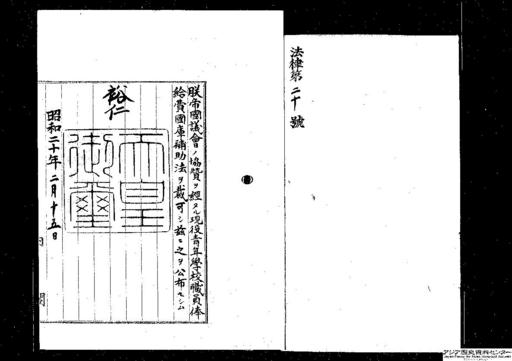 法律第二十號
朕帝國議會ノ協贊ヲ經タル現役青年學校職員俸
給費國庫補助法ヲ裁可シ茲ニ之ヲ公布セシム
裕仁
天皇
御璽
昭和二十年二月十五日
アジア歴史資料センター
Japan Center for Asian Historical Records